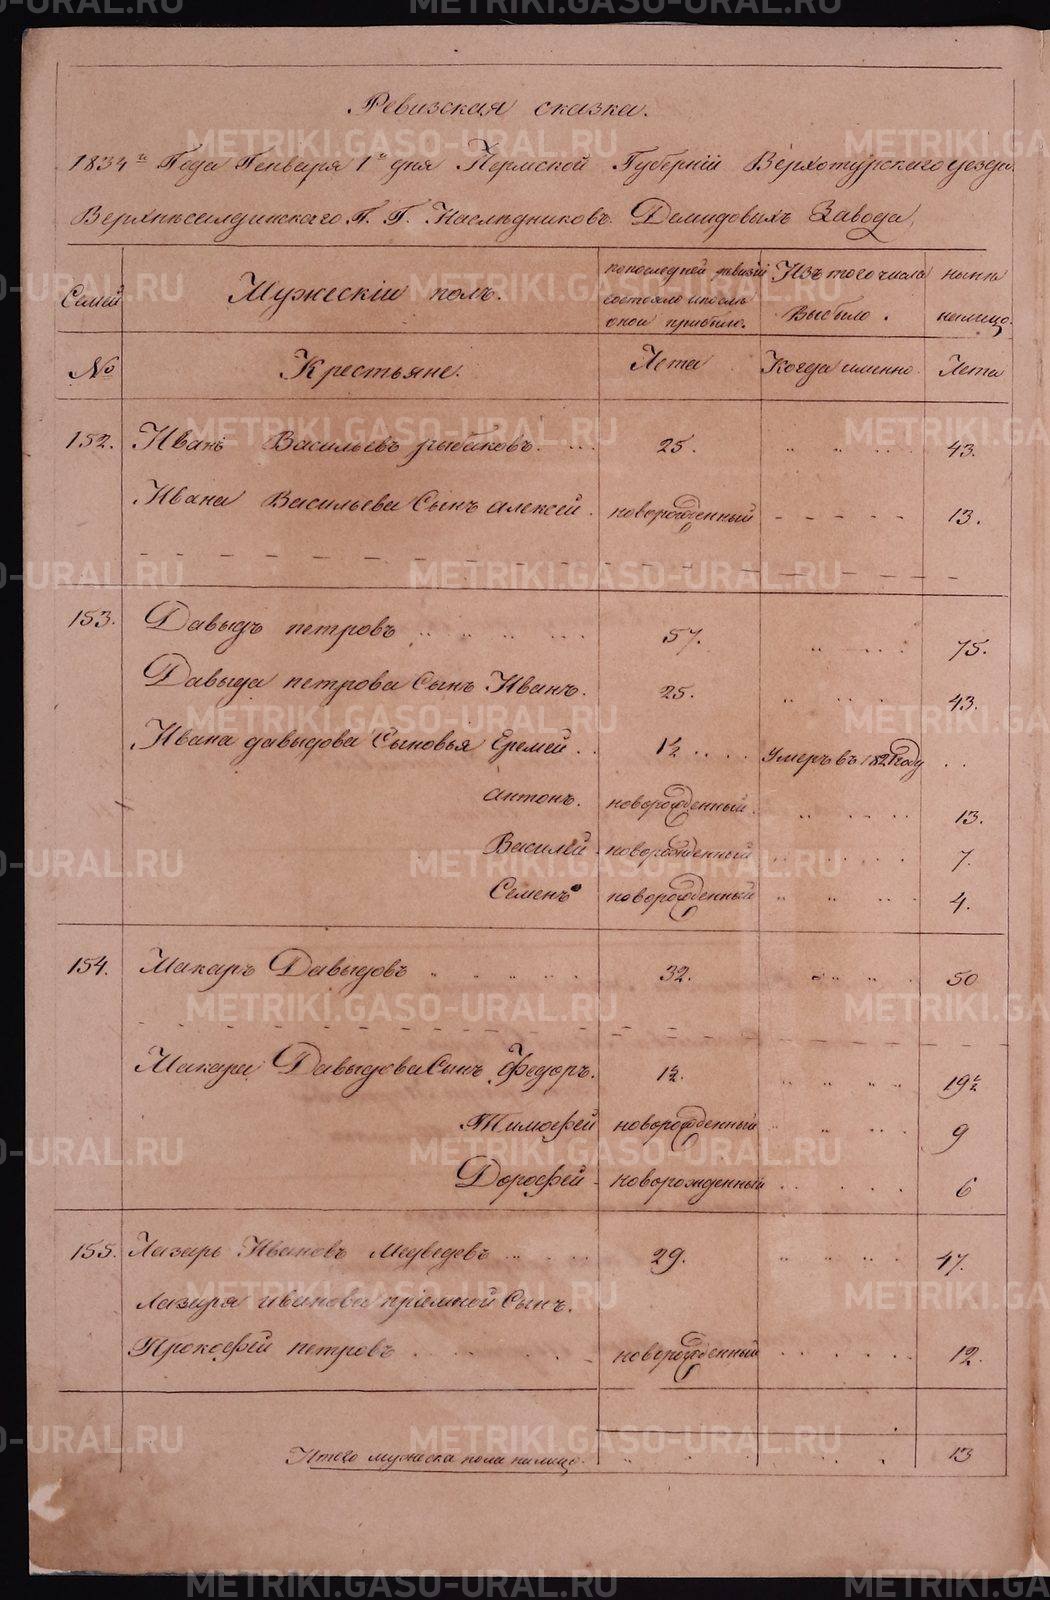 Ревизская сказка.
1834го Года Генваря 1го дня Пермской Губернiи Верхотурскаго уезда
Верхнесалдинскаго Г. Г. Наследниковъ Демидовыхъ Завода,
Семей Мужескiй полъ. по последней ревизiи состояло и после оной прибыло. Изъ того числа Выбыло. ныне на лицо.
№ Крестьяне. Лета Когда именно. Лета
152. Иванъ Васильевъ рыбаковъ. 25. 43.
Ивана Васильева Сынъ алексей. новорожденный 13.
153. Давыдъ петровъ 57. 75.
Давыда петрова Сынъ Иванъ. 25. 43.
Ивана давыдова Сыновья Еремей 1½ Умеръ въ 1821 году
антонъ. новорожденный. 13.
Василей новорожденный 7.
Семенъ новорожденный 4.
154. Макаръ Давыдовъ 32. 50
Макара Давыдова Сынъ Федоръ. 1½. 19½
Тимофей новорожденный 9
Дорофей новорожденный 6
155. Лазарь Ивановъ Медведевъ 29. 47.
Лазаря иванова прiемной Сынъ.
Прокофей петровъ новорожденный 12.
Итого мужеска пола на лицо. 13
METRIKI.GASO-URAL.RU